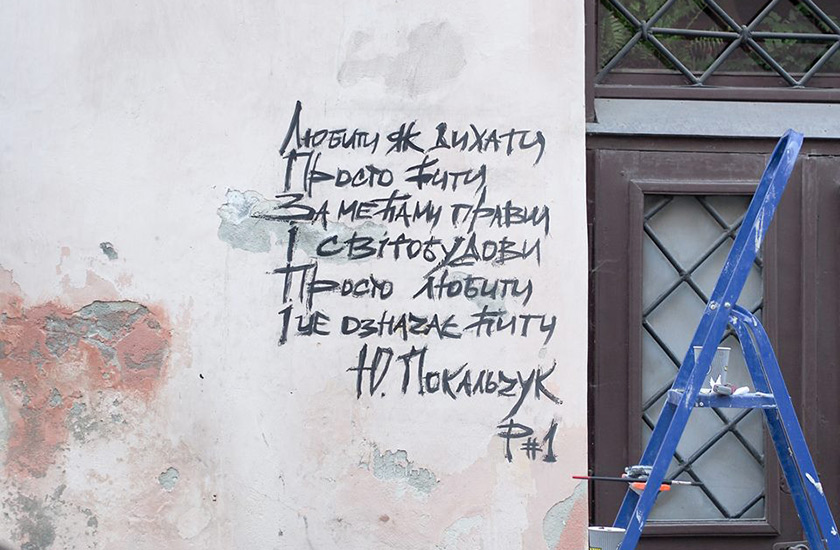 Любити як дихати
Просто жити
За межами правди
І світобудови
Просто любити
І це означає жити
Ю. Покальчук
Р#1